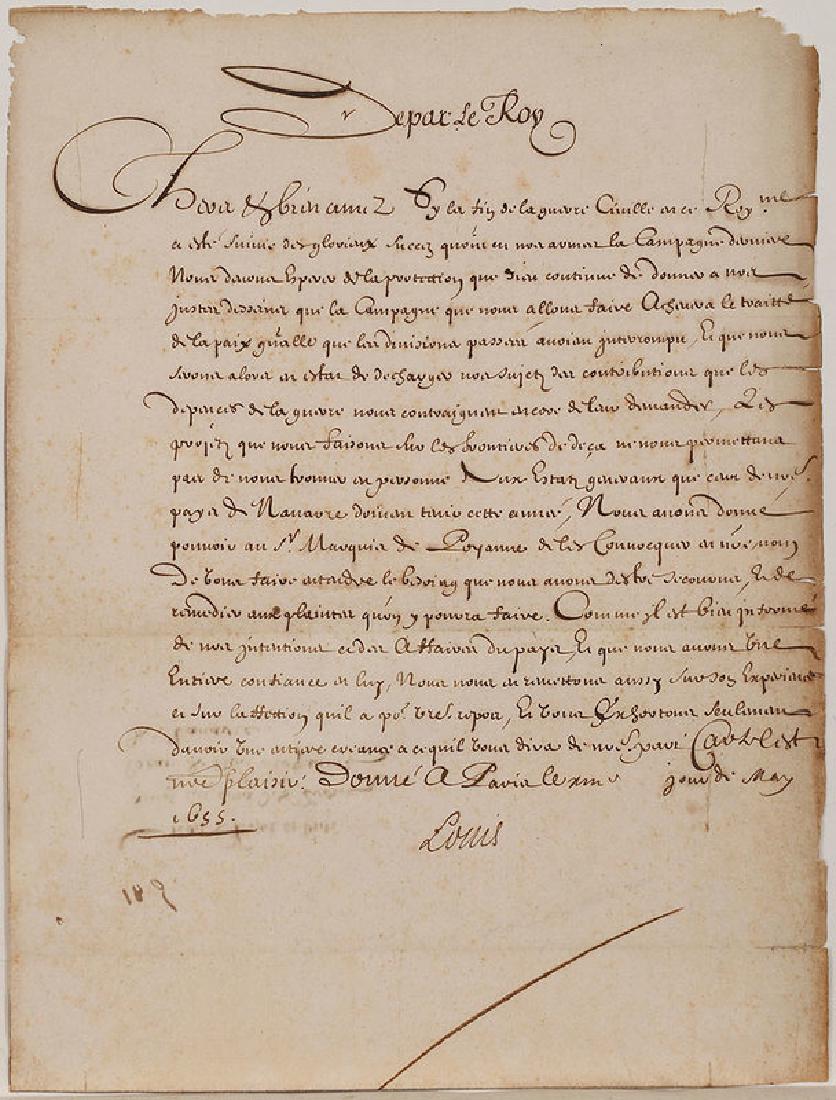 De par Le Roy
Chers & bien amez Sy la fin de la guerre Civille en ce Roy.me
a esté suivie des glorieux succez qu'ont eu nos armes la Campagne derniere
Nous devons Esperer de la protection que Dieu continue de donner a nos
justes desseins que la Campagne que nous allons faire Achevera le traitté
de la paix g'nalle que les divisions passées avoient interrompu, Et que nous
serons alors en estat de descharger nos sujetz des contributions que les
depences de la guerre nous contraignent encore de leur demander, Les
projetz que nous faisons sur les frontieres de deça ne nous permettans
pas de nous trouver en personne Aux Estatz generaux que ceux de n're
pays de Navarre doivent tenir cette année, Nous avons donné
pouvoir au Sr. Marquis de Poyanne de les Convocquer en n're nom
De vous faire entendre le besoing que nous avons d'estre secourus, Et de
remedier aux plaintes qu'on y pourra faire. Comme il est bien informé
de nos intentions et des Affaires du pays, Et que nous avons Une
Entiere confiance en luy, Nous nous en remettons aussy sur son Experience
et sur l'affection qu'il a po.r v're repos, Et vous Exhortons seulement
d'avoir Une entiere creance a ce qu'il vous dira de n're part Car tel est
n're plaisir. Donné A Paris le jour de May
1655.
Louis